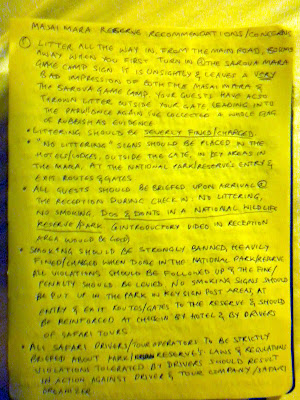 MASAI MARA RESERVE RECOMMENDATIONS/CONCERNS
① LITTER ALL THE WAY IN, FROM THE MAIN ROAD,
AWAY WHEN YOU FIRST TURN IN @ THE SAROVA MARA
GAME CAMP SIGN. IT IS UNSIGHTLY & LEAVES A VERY
BAD IMPRESSION OF BOTH THE MASAI MARA &
THE SAROVA GAME CAMP. YOUR GUESTS HAVE ALSO
THROWN LITTER OUTSIDE YOUR GATE LEADING INTO
THE PARK/ ONCE AGAIN I'VE COLLECTED A WHOLE BAG
OF RUBBISH AS EVIDENCE
• LITTERING SHOULD BE SEVERELY FINED/CHARGED
• "NO LITTERING" SIGNS SHOULD BE PLACED IN THE
HOTELS/LODGES, OUTSIDE THE GATE, IN KEY AREAS IN
THE MARA, AT THE NATIONAL PARK/RESERVE'S ENTRY &
EXIT ROUTES & GATES
• ALL GUESTS SHOULD BE BRIEFED UPON ARRIVAL @
THE RECEPTION DURING CHECK IN: NO LITTERING,
NO SMOKING, DOS & DONTS, IN A NATIONAL WILDLIFE
RESERVE/PARK. (INTRODUCTORY VIDEO IN RECEPTION
AREA WOULD BE GOOD)
• SMOKING SHOULD BE STRONGLY BANNED, HEAVILY
FINED/CHARGED WHEN DONE IN THE NATIONAL PARK/RESERVE
ALL VIOLATIONS SHOULD BE FOLLOWED UP & THE FINE/
PENALTY SHOULD BE LEVIED. NO SMOKING SIGNS SHOULD
BE PUT UP IN THE PARK IN KEY SIGN POST AREAS, AT
ENTRY & EXIT ROUTES/GATES TO THE RESERVE & SHOULD
BE REINFORCED AT CHECK-IN @ HOTEL & BY DRIVERS
OF SAFARI TOURS.
• ALL SAFARI DRIVERS/TOUR OPERATORS TO BE STRICTLY
BRIEFED ABOUT PARK/ RESERVE'S LAWS & REGULATIONS
VIOLATIONS TOLERATED BY DRIVERS SHOULD RESULT
IN ACTION AGAINST DRIVER & TOUR COMPANY/SAFARI
ORGANIZER.